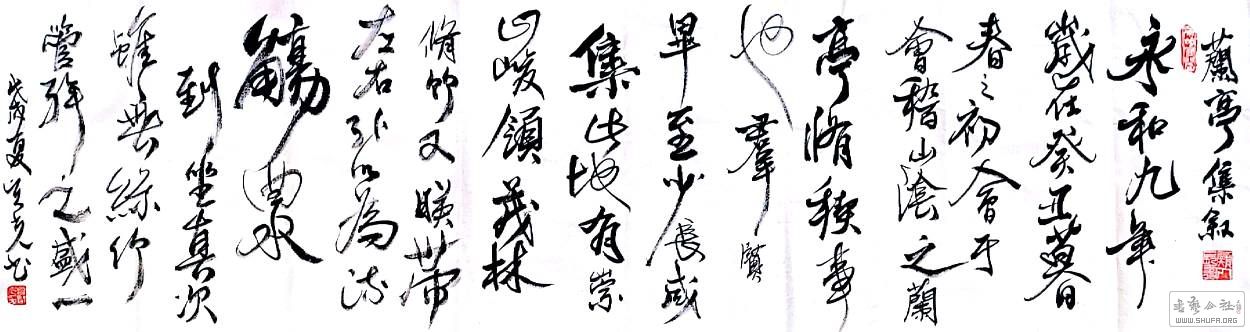 蘭亭集叙
永和九年
歲在癸丑暮
春之初会于
會稽山陰之蘭
亭脩稧事
也羣賢
畢至少長咸
集此地有崇
山峻領茂林
脩竹又暎帶
左右引以為流
觴曲水
列坐其次
雖無絲竹
管弦之盛一
戊戌夏
书艺公社
WWW.SHUFA.ORG